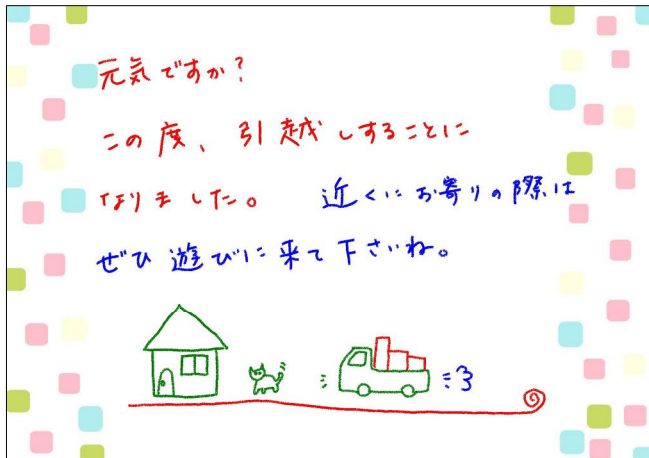 元気ですか？
この度、引越しすることに
なりました。 近くにお寄りの際は
ぜひ遊びに来て下さいね。